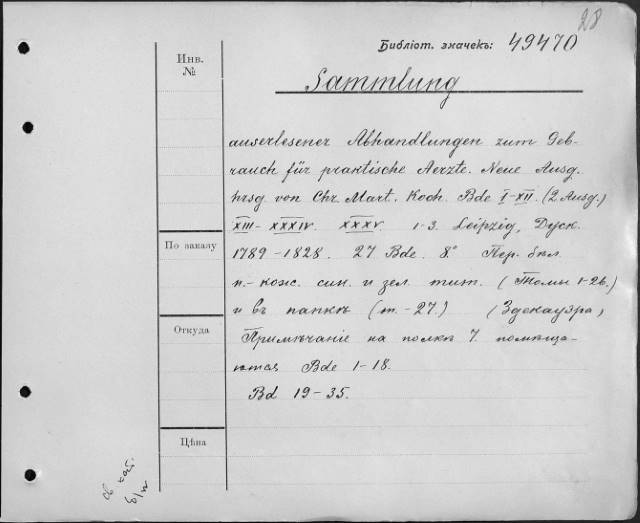 28
Библіот. значекъ: 49470
Инв.
№
Sammlung
auserlesener Abhandlungen zum Geb-
rauch für praktische Aerzte. Neue Ausg.
hrsg von Chr. Mart. Koch. Bde I-XII. (2 Ausg.)
XIII- XXXIV. XXXV. 1-3. Leipzig, Dyck.
По заказу
1789-1828. 27 Bde. 8° Пер. бкл.
п.-кож. син. и зел. тит. (Томы 1-26.)
и въ папкѣ (т.-27.) (Здекауэра)
Откуда
Примѣчаніе на полкѣ 7. помѣща-
ются Bde 1-18.
Bd 19-35.
Цѣна